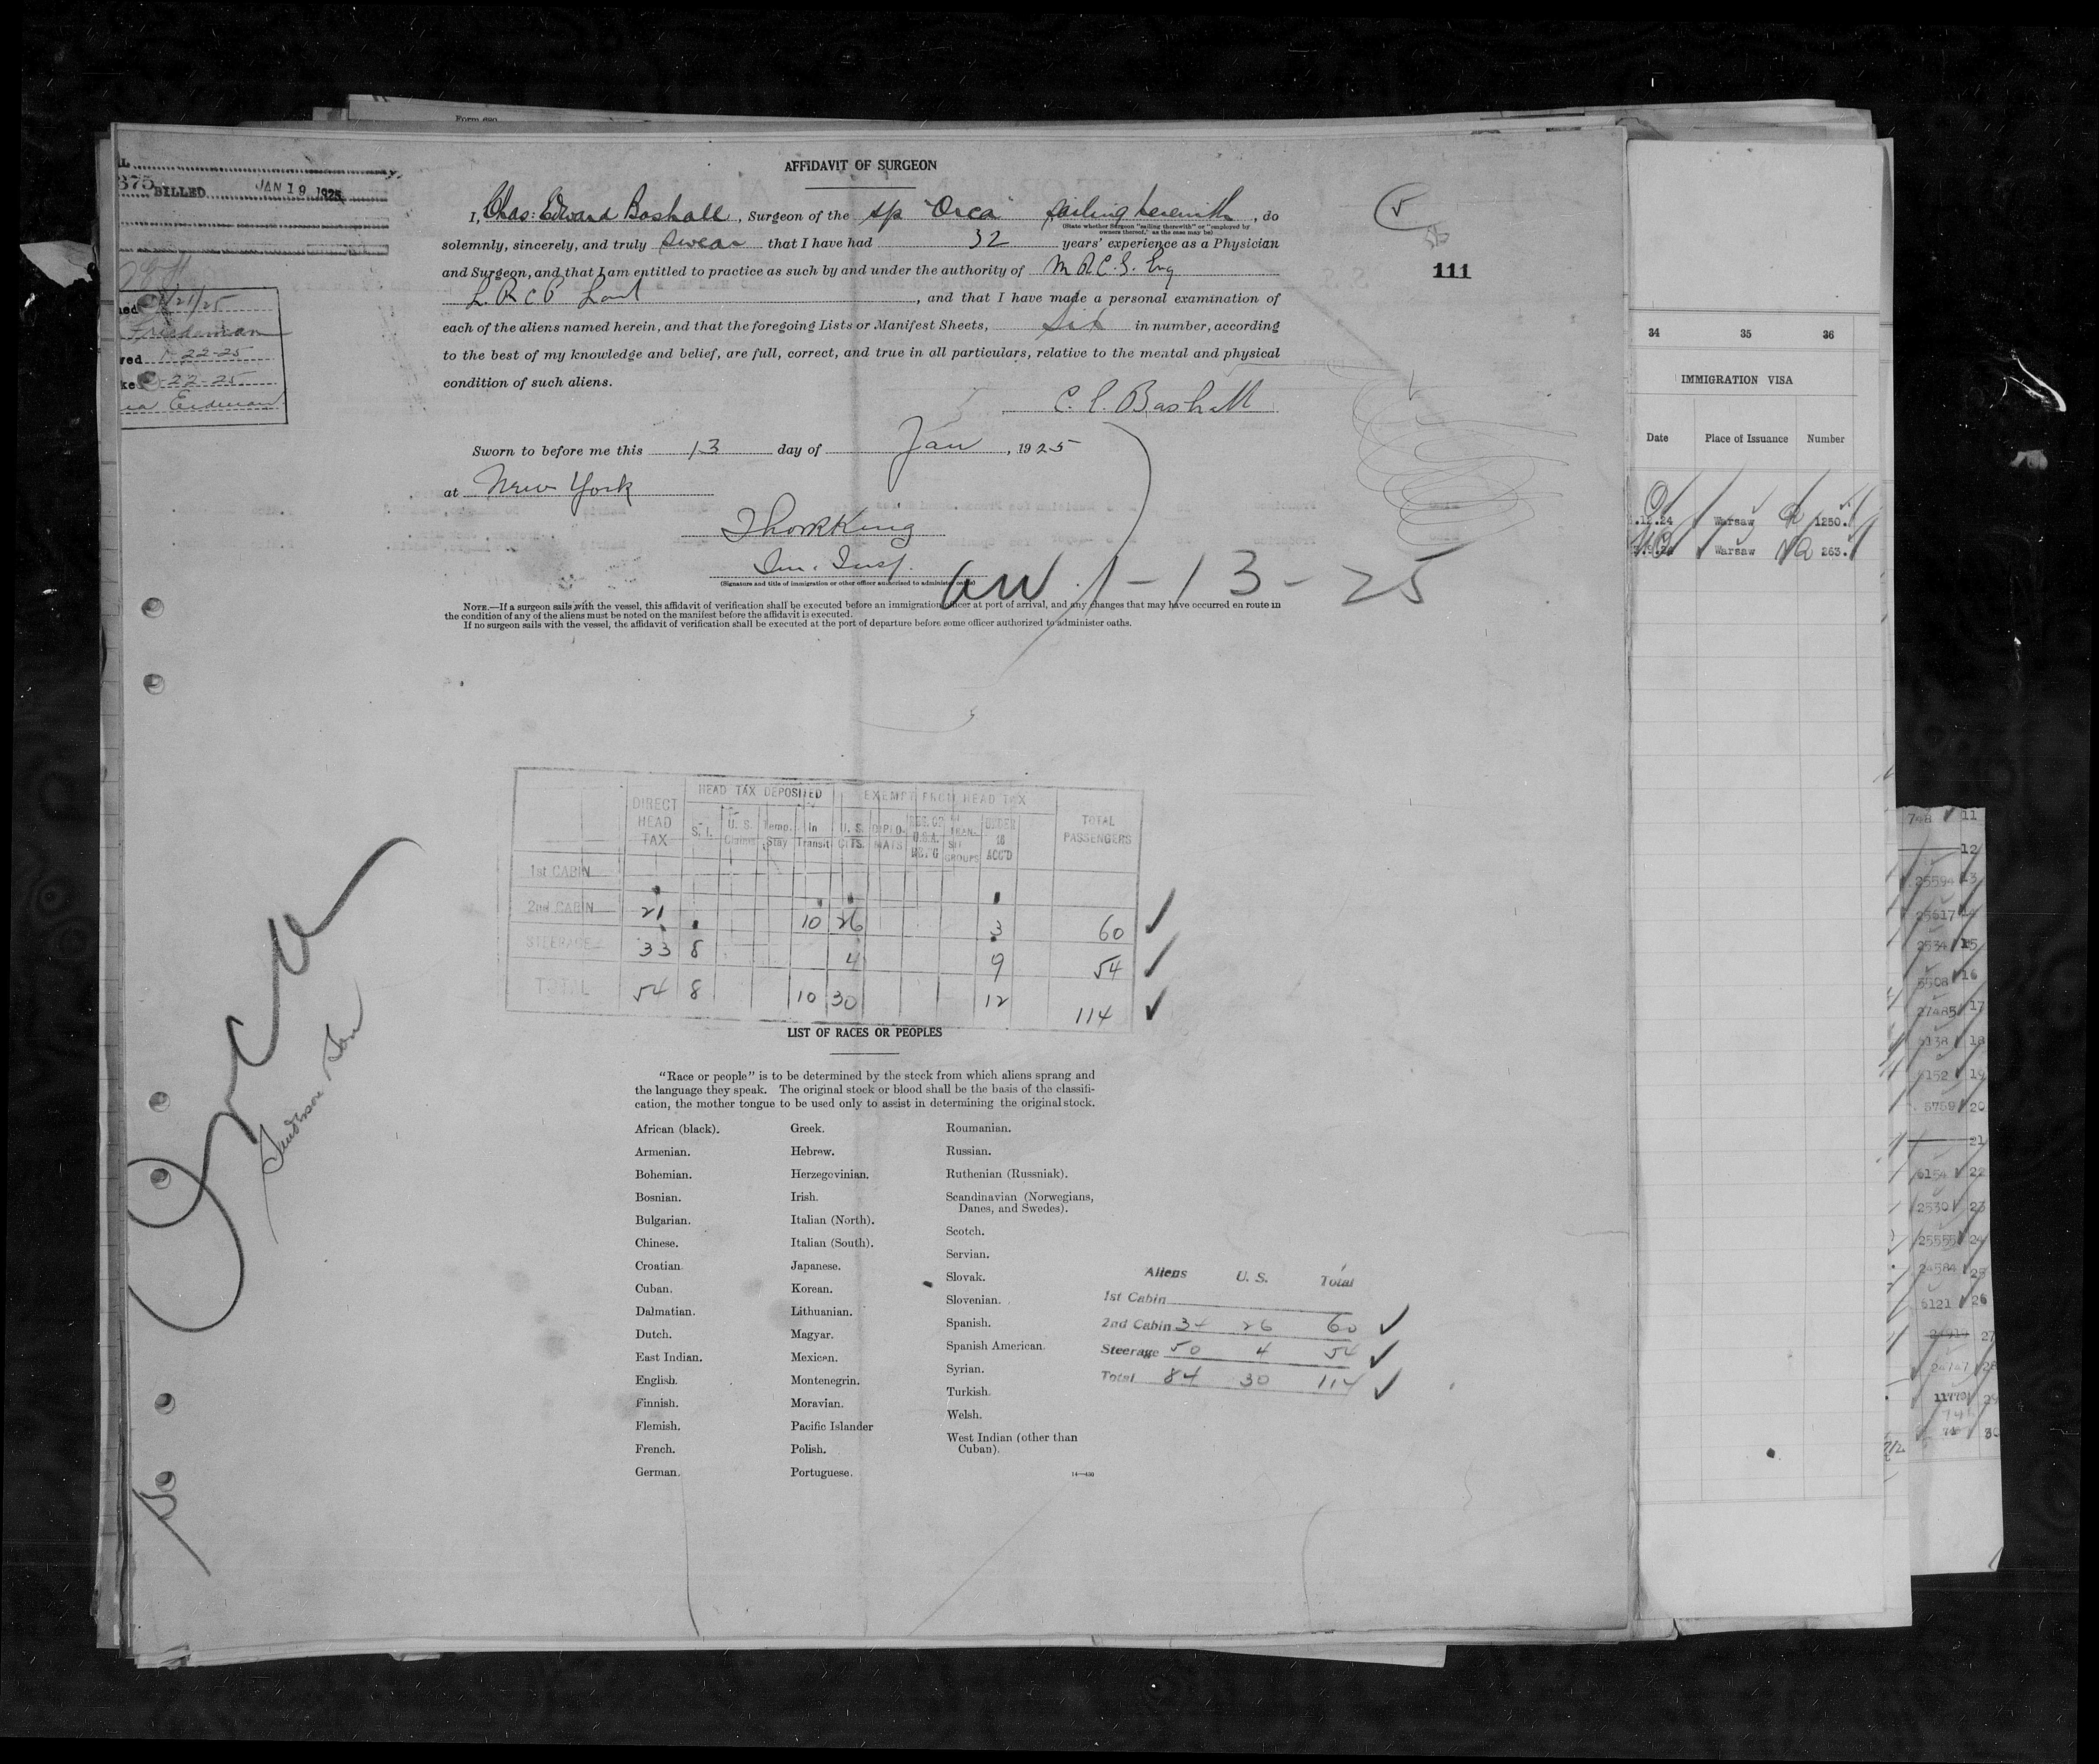 Form 680
AFFIDAVIT OF SURGEON
375 BILLED JAN 19 1925
I, Chas: Edward Bashall, Surgeon of the sp "Orca" sailing herewith, do
(State whether Surgeon "sailing therewith" or "employed by
owners thereof," as the case may be)
solemnly, sincerely, and truly swear that I have had 32 years' experience as a Physician
and Surgeon, and that I am entitled to practice as such by and under the authority of M R C S. Eng
L. R C P Lond, and that I have made a personal examination of
each of the aliens named herein, and that the foregoing Lists or Manifest Sheets, Six in number, according
to the best of my knowledge and belief, are full, correct, and true in all particulars, relative to the mental and physical
condition of such aliens.
C. E. Bashall
111
1/21/25
Friedeman
1-22-25
-22-25
Eidman
Sworn to before me this 13 day of Jan, 1925
at New York
Thor King
Im. Insp.
(Signature and title of immigration or other officer authorized to administer oaths)
1-13-25
NOTE.—If a surgeon sails with the vessel, this affidavit of verification shall be executed before an immigration officer at port of arrival, and any changes that may have occurred en route in
the condition of any of the aliens must be noted on the manifest before the affidavit is executed.
If no surgeon sails with the vessel, the affidavit of verification shall be executed at the port of departure before some officer authorized to administer oaths.
HEAD TAX DEPOSITED EXEMPT FROM HEAD TAX
DIRECT HEAD TAX S. I. U. S. Claims Temp. Stay In Transit U. S. CITS. DIPLO-MATS RES. OF U.S.A. RET'G TRAN-SIT GROUPS UNDER 16 ACC'D TOTAL PASSENGERS
1st CABIN
2nd CABIN 21 10 26 3 60
STEERAGE 33 8 4 9 54
TOTAL 54 8 10 30 12 114
Orca
LIST OF RACES OR PEOPLES
"Race or people" is to be determined by the stock from which aliens sprang and
the language they speak. The original stock or blood shall be the basis of the classifi-
cation, the mother tongue to be used only to assist in determining the original stock.
African (black).
Armenian.
Bohemian.
Bosnian.
Bulgarian.
Chinese.
Croatian.
Cuban.
Dalmatian.
Dutch.
East Indian.
English.
Finnish.
Flemish.
French.
German.
Greek.
Hebrew.
Herzegovinian.
Irish.
Italian (North).
Italian (South).
Japanese.
Korean.
Lithuanian.
Magyar.
Mexican.
Montenegrin.
Moravian.
Pacific Islander
Polish.
Portuguese.
Roumanian.
Russian.
Ruthenian (Russniak).
Scandinavian (Norwegians,
Danes, and Swedes).
Scotch.
Servian.
Slovak.
Slovenian.
Spanish.
Spanish American.
Syrian.
Turkish.
Welsh.
West Indian (other than
Cuban).
14—430
Aliens U. S. Total
1st Cabin
2nd Cabin 34 26 60
Steerage 50 4 54
Total 84 30 114
34 35 36
IMMIGRATION VISA
Date Place of Issuance Number
.12.24 Warsaw 1250.
Warsaw 263.
748 11
12
25594 13
25617 14
2534 15
5508 16
27485 17
6138 18
6152 19
5759 20
21
6154 22
2530 23
25555 24
24584 25
6121 26
27
24747 28
11773 29
30